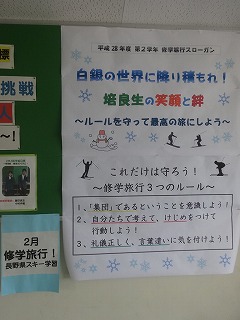 標
挑戦
人
～!
平成28年度 第2学年 修学旅行スローガン
白銀の世界に降り積もれ！
培良生の笑顔と絆
～ルールを守って最高の旅にしよう～
これだけは守ろう！
～修学旅行3つのルール～
1、「集団」であるということを意識しよう！
2、自分たちで考えて、けじめをつけて
行動しよう！
3、礼儀正しく、言葉遣いに気を付けよう！
2月
修学旅行！
長野県スキー学習